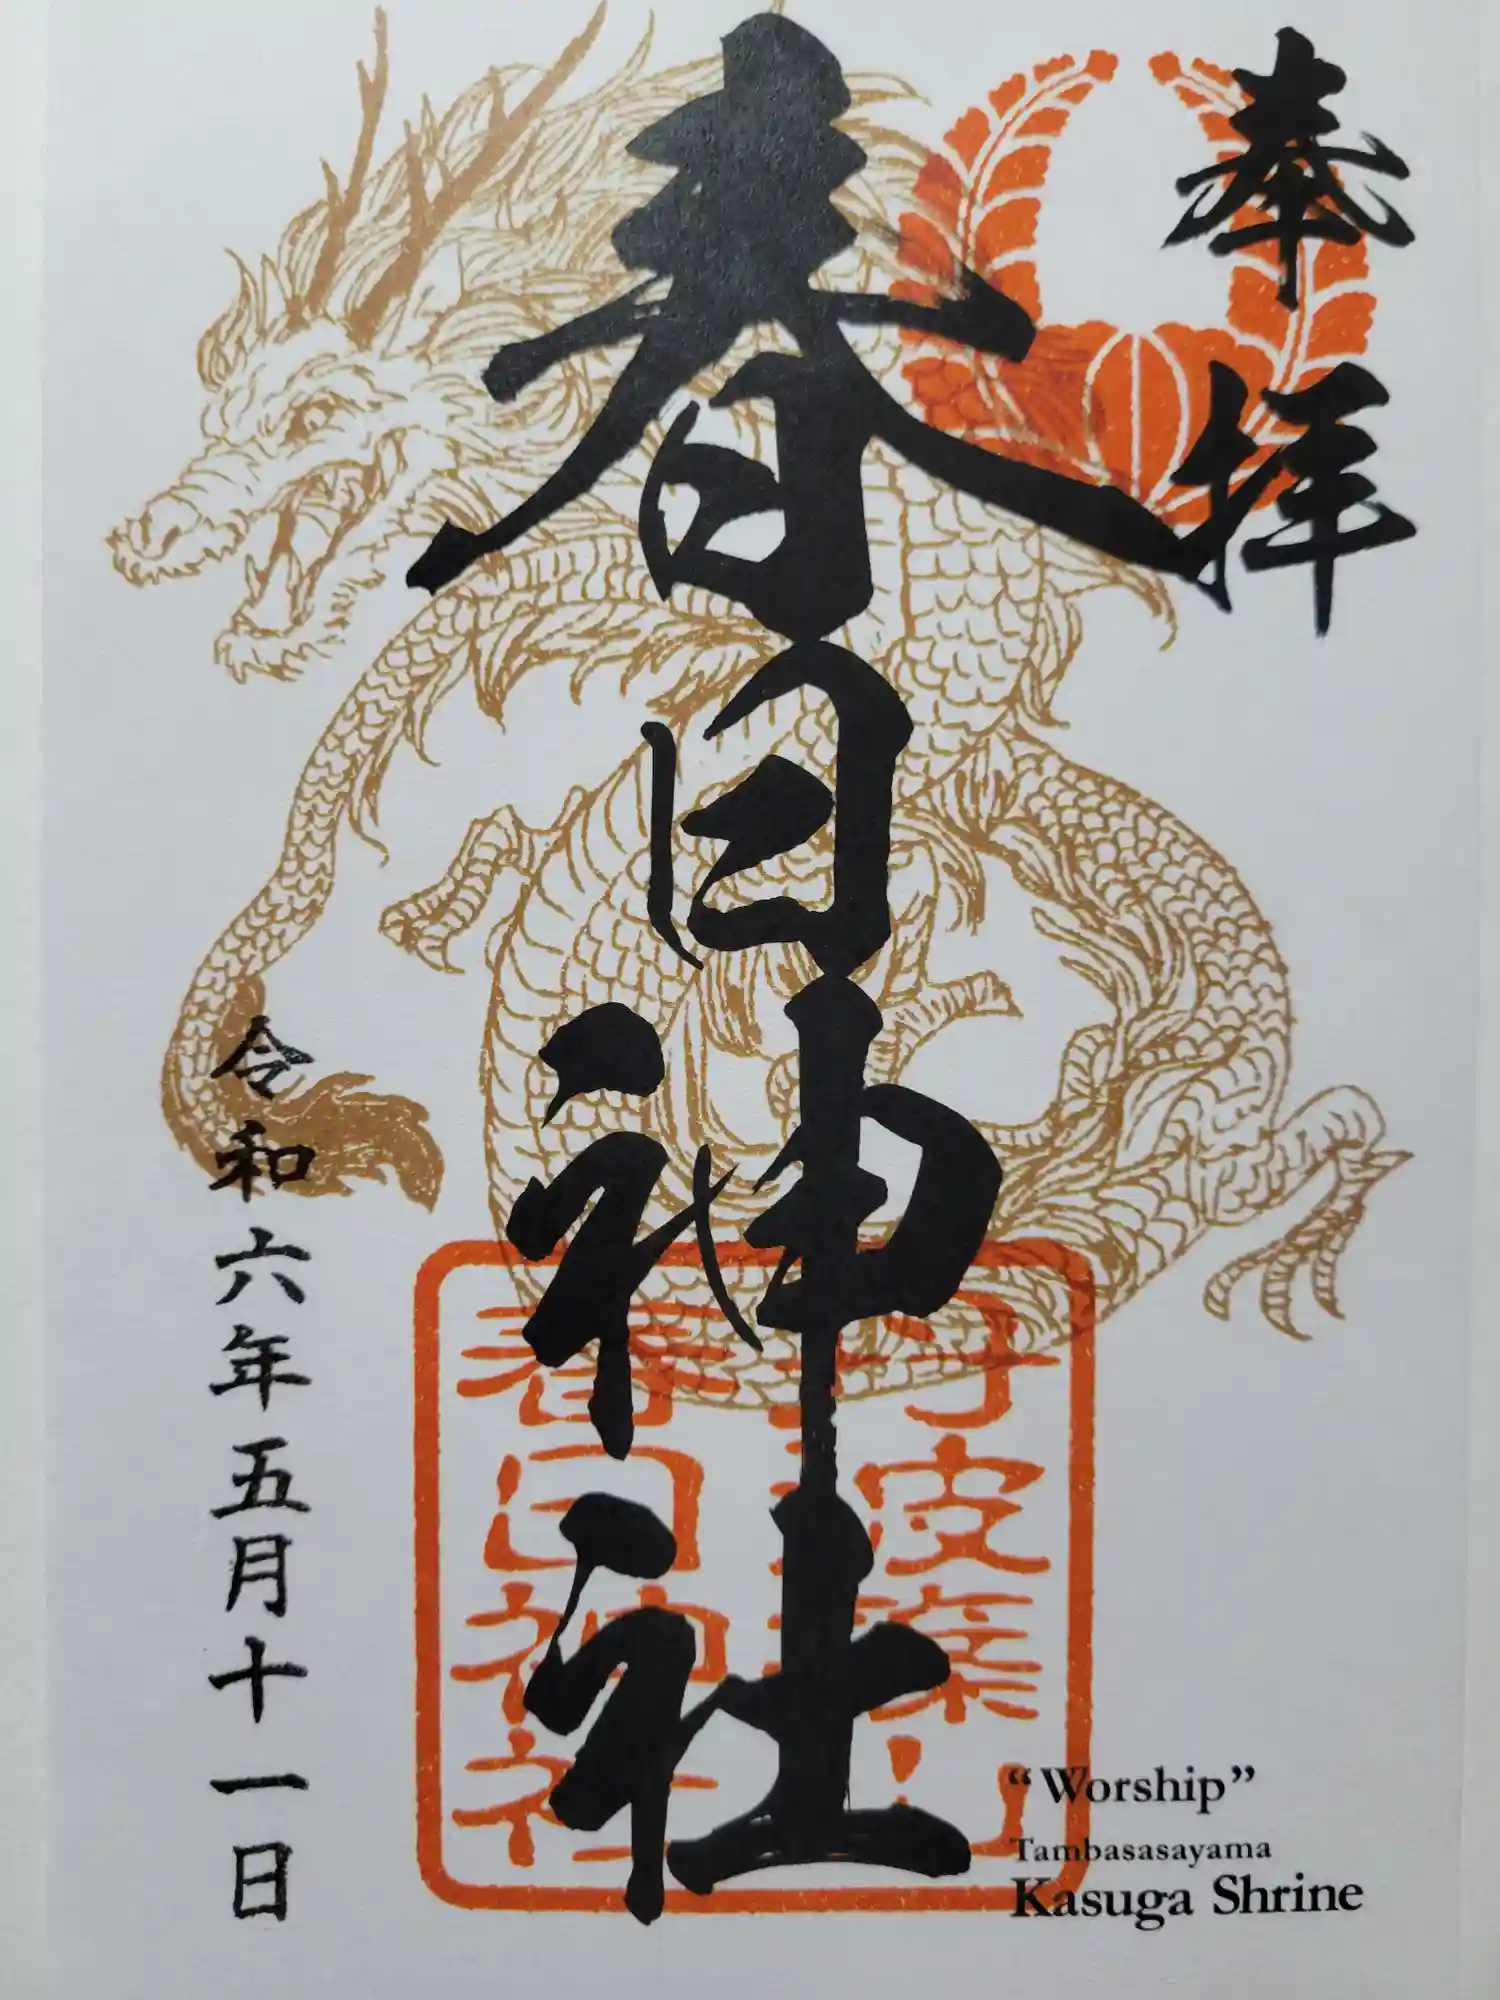 奉拝
春日神社
令和六年五月十一日
春日神社
“Worship”
Tambasasayama
Kasuga Shrine